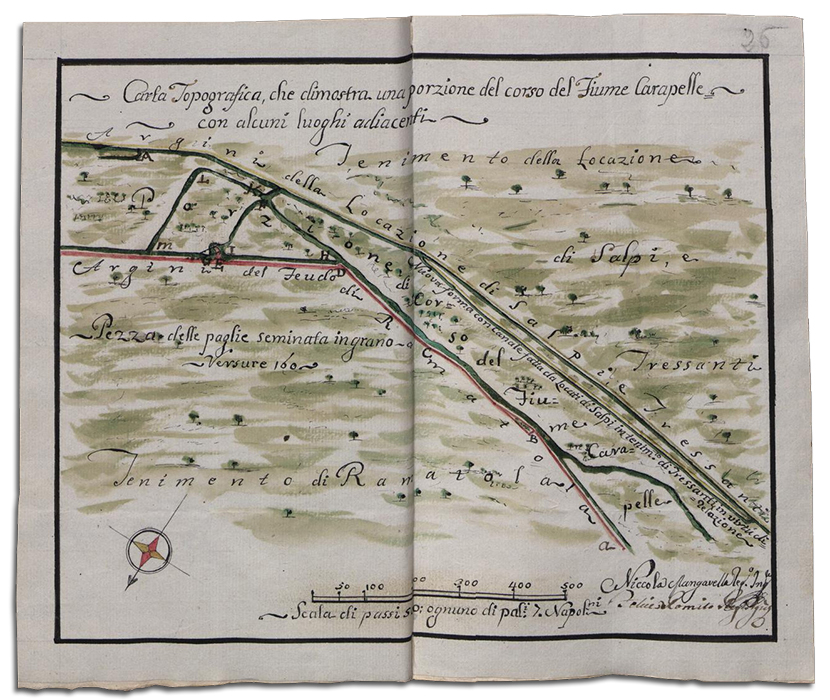 26
Carta Topografica, che dimostra una porzione del corso del Fiume Carapelle
con alcuni luoghi adiacenti
Argini della Locazione di Salpi, e Tressanti
Tenimento della Locazione
di Salpi, e
Tressanti
A
L
K
Partizione di
m
I
E
H
D
Argini del Feudo di Ramatola
a
Nuova forma con Canale fatta da Locati di Salpi in tenim.to di Tressanti in virtù di
relazione
Corso del Fiume Carapelle
B
Pezza delle paglie seminata in grano
Versure 160
Tenimento di Ramatola
50 100 200 400 500
Scala di passi 50: ognuno di pal: 7. Napolni
Niccola Mangarella Reg.o Ing.re